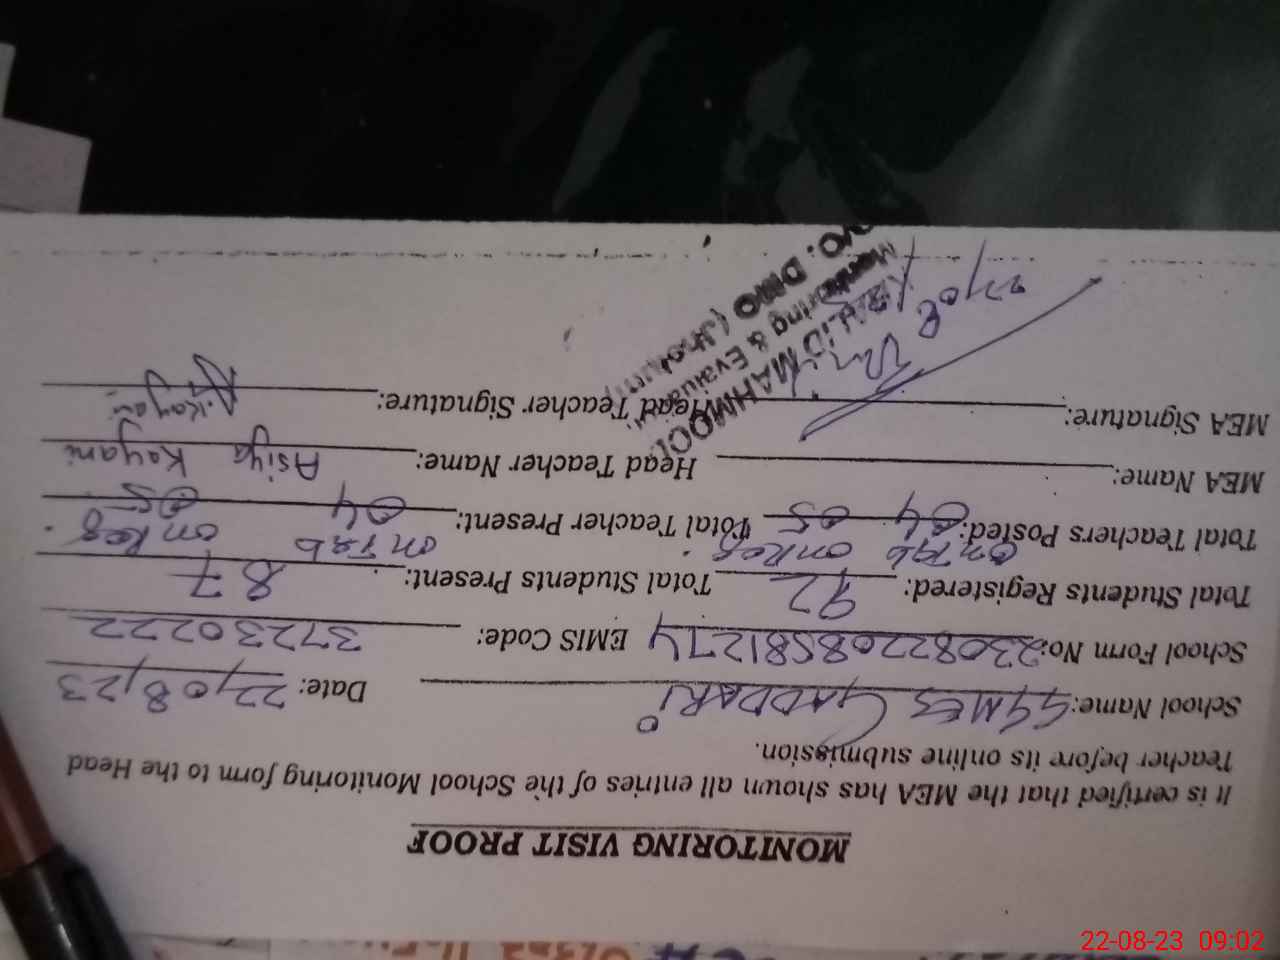 MONITORING VISIT PROOF
It is certified that the MEA has shown all entries of the School Monitoring form to the Head
Teacher before its online submission.
School Name: GGMES GADDARI Date: 22/08/23
School Form No: 23082208581274 EMIS Code: 37230222
Total Students Registered: 92 Total Students Present: 87
on Tab on Reg. on Tab on Reg.
Total Teachers Posted: 04 05 Total Teacher Present: 04 05
MEA Name: Head Teacher Name: Asiya Kayani
MEA Signature: Head Teacher Signature: A.Kayani
KHALID MAHMOOD
Monitoring & Evaluat
DMO (Jhelum)
22-08-23 09:02